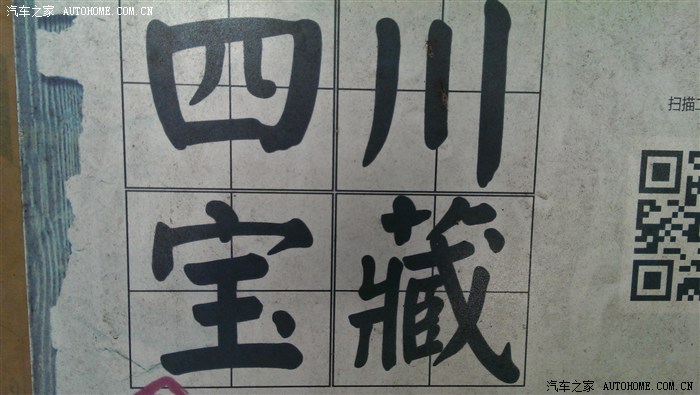 汽车之家 AUTOHOME.COM.CN
四川
扫描
宝藏
汽车之家 AUTOHOME.COM.CN